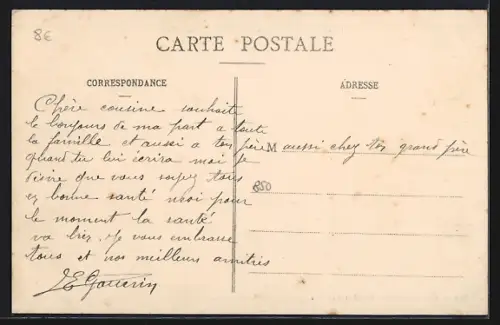 8€
CARTE POSTALE
CORRESPONDANCE
Chère cousine souhaite
le bonjours de ma part a toute
la famille et aussi a ton père
quand tu lui écrira moi je
désire que vous soyez tous
en bonne santé moi pour
le moment la santé
va bien. Je vous embrasse
tous et nos meilleurs amitiés
ADRESSE
M aussi chez ton grand père
850